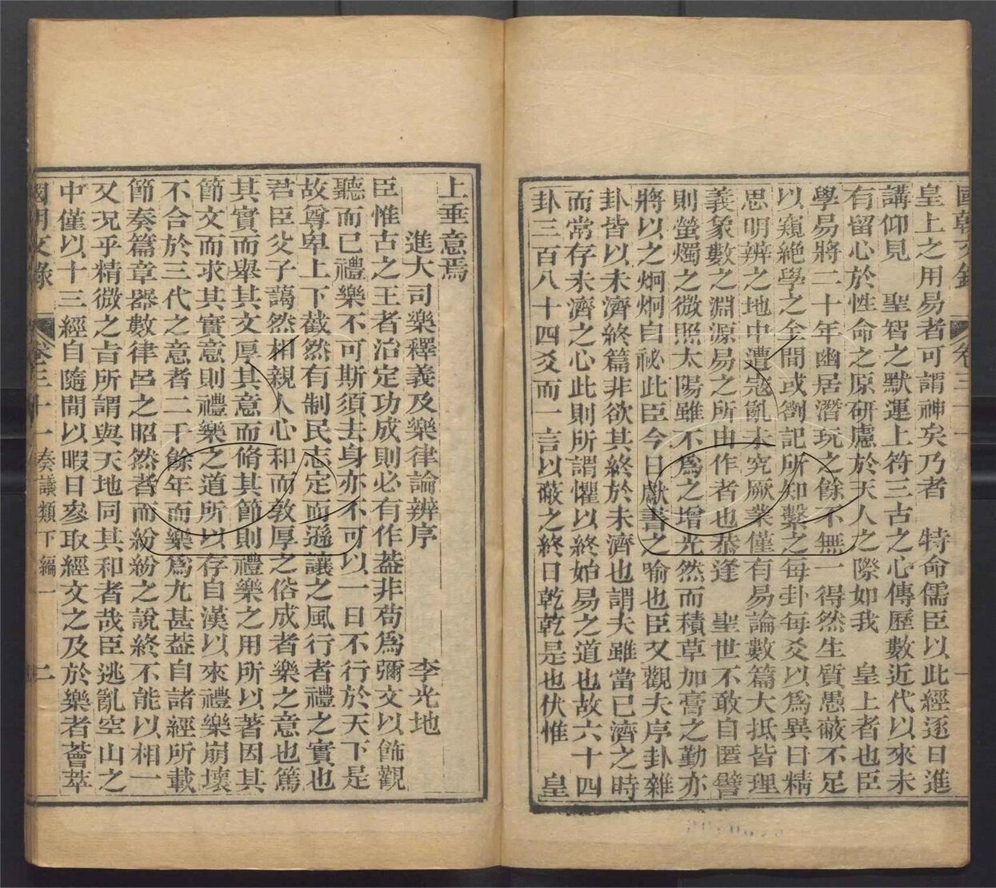 國朝文錄　卷三十一
皇上之用易者可謂神矣乃者　特命儒臣以此經逐日進
講仰見　聖智之默運上符三古之心傳歷數近代以來未
有留心於性命之原研慮於天人之際如我　皇上者也臣
學易將二十年幽居潛玩之餘不無一得然生質愚蔽不足
以窺絕學之全間或劄記所知繫之每卦每爻以爲異日精
思明辨之地中遭寇亂未究厥業僅有易論數篇大抵皆理
義象數之淵源易之所由作者也恭逢　聖世不敢自匿譬
則螢燭之微照太陽雖不爲之增光然而積草加膏之勤亦
將以之炯炯自祕此臣今日獻書之喻也臣又觀夫序卦雜
卦皆以未濟終篇非欲其終於未濟也謂夫雖當已濟之時
而常存未濟之心此則所謂懼以終始易之道也故六十四
卦三百八十四爻而一言以蔽之終日乾乾是也伏惟　皇
上垂意焉
進大司樂釋義及樂律論辨序　李光地
臣惟古之王者治定功成則必有作葢非苟爲彌文以飾觀
聽而已禮樂不可斯須去身亦不可以一日不行於天下是
故尊卑上下截然有制民志定而遜讓之風行者禮之實也
君臣父子藹然相親人心和而敦厚之俗成者樂之意也篤
其實而舉其文厚其意而脩其節則禮樂之用所以著因其
節文而求其實意則禮樂之道所以存自漢以來禮樂崩壞
不合於三代之意者二千餘年而樂爲尤甚葢自諸經所載
節奏篇章器數律呂之昭然者而紛紛之說終不能以相一
又况乎精微之旨所謂與天地同其和者哉臣逃亂空山之
中僅以十三經自隨間以暇日參取經文之及於樂者薈萃
國朝文錄　卷三十一　奏議類下編一　二